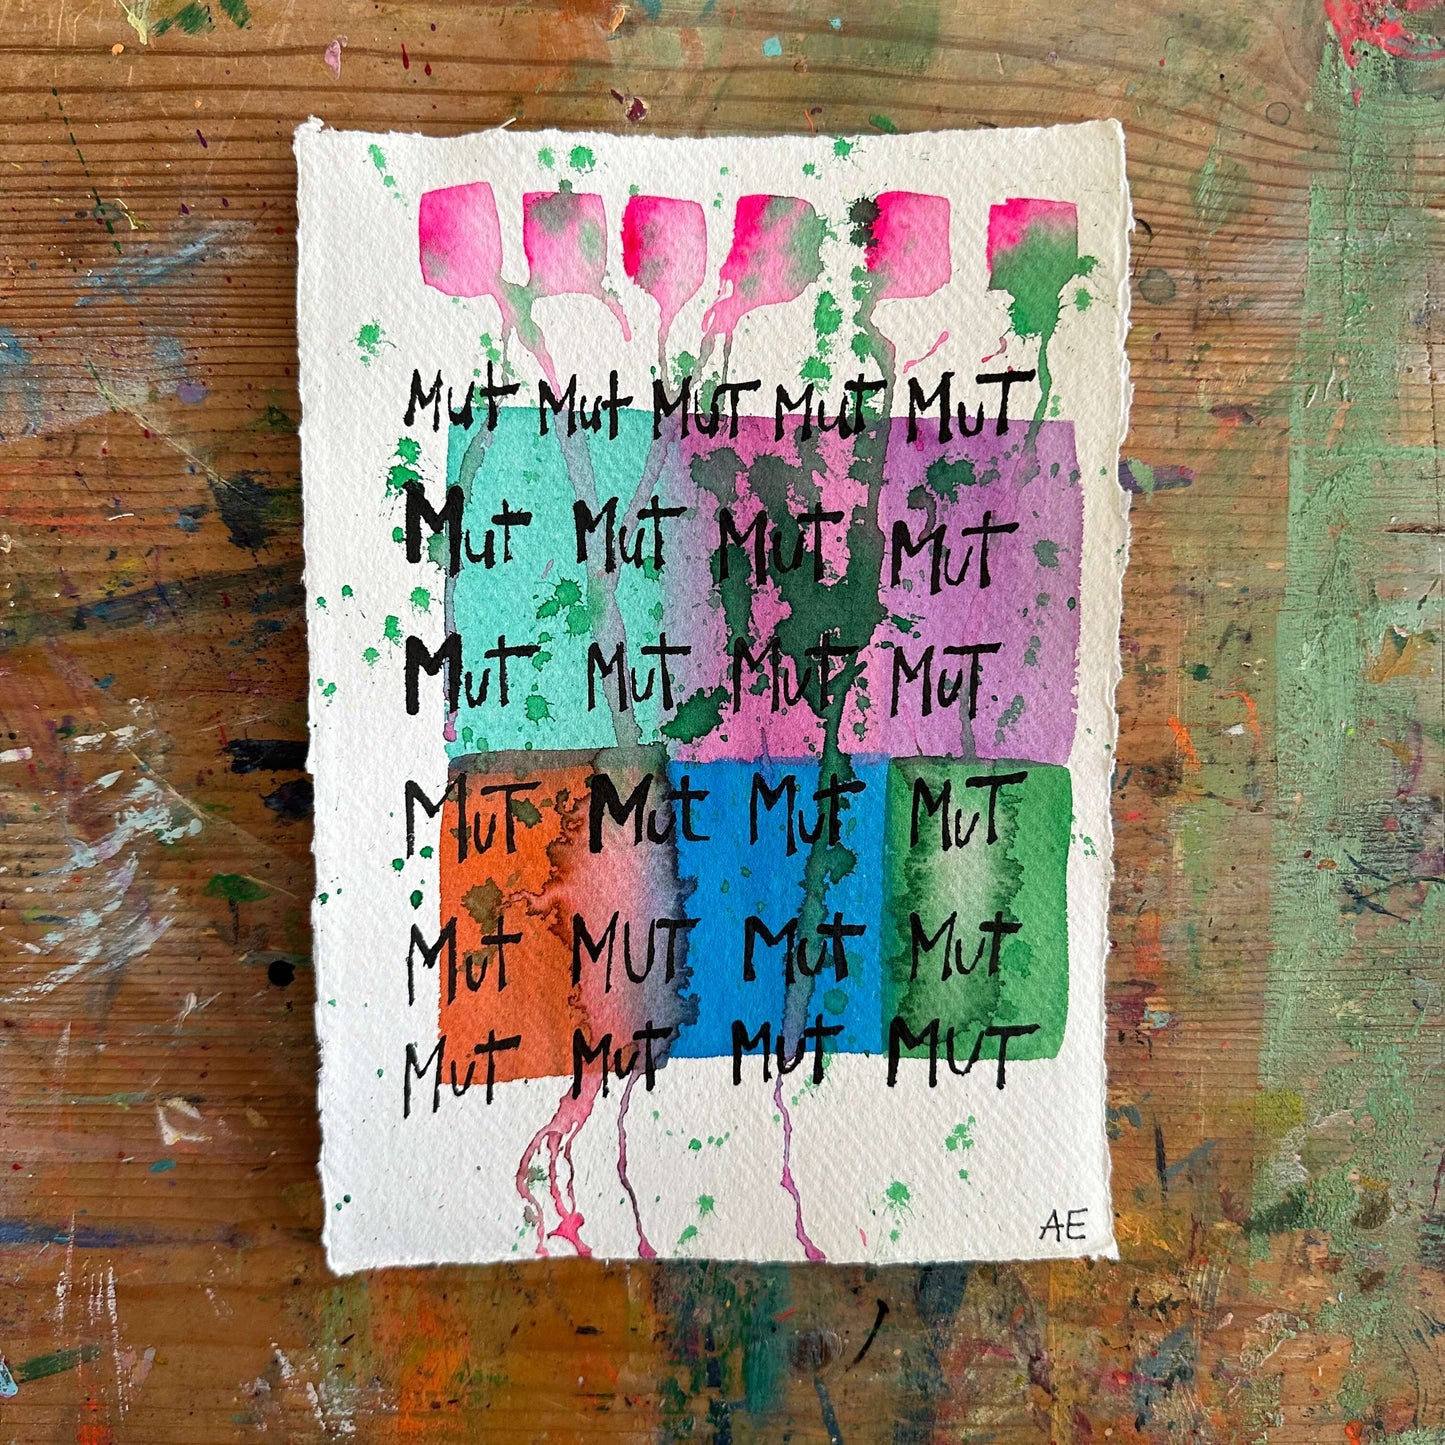 Mut Mut MUT MUT MUT
Mut MuT MUT MUT
MuT MuT MuT MuT
MuT Mut MuT MuT
Mut MUT Mut Mut
MuT MuT MUT MUT
AE